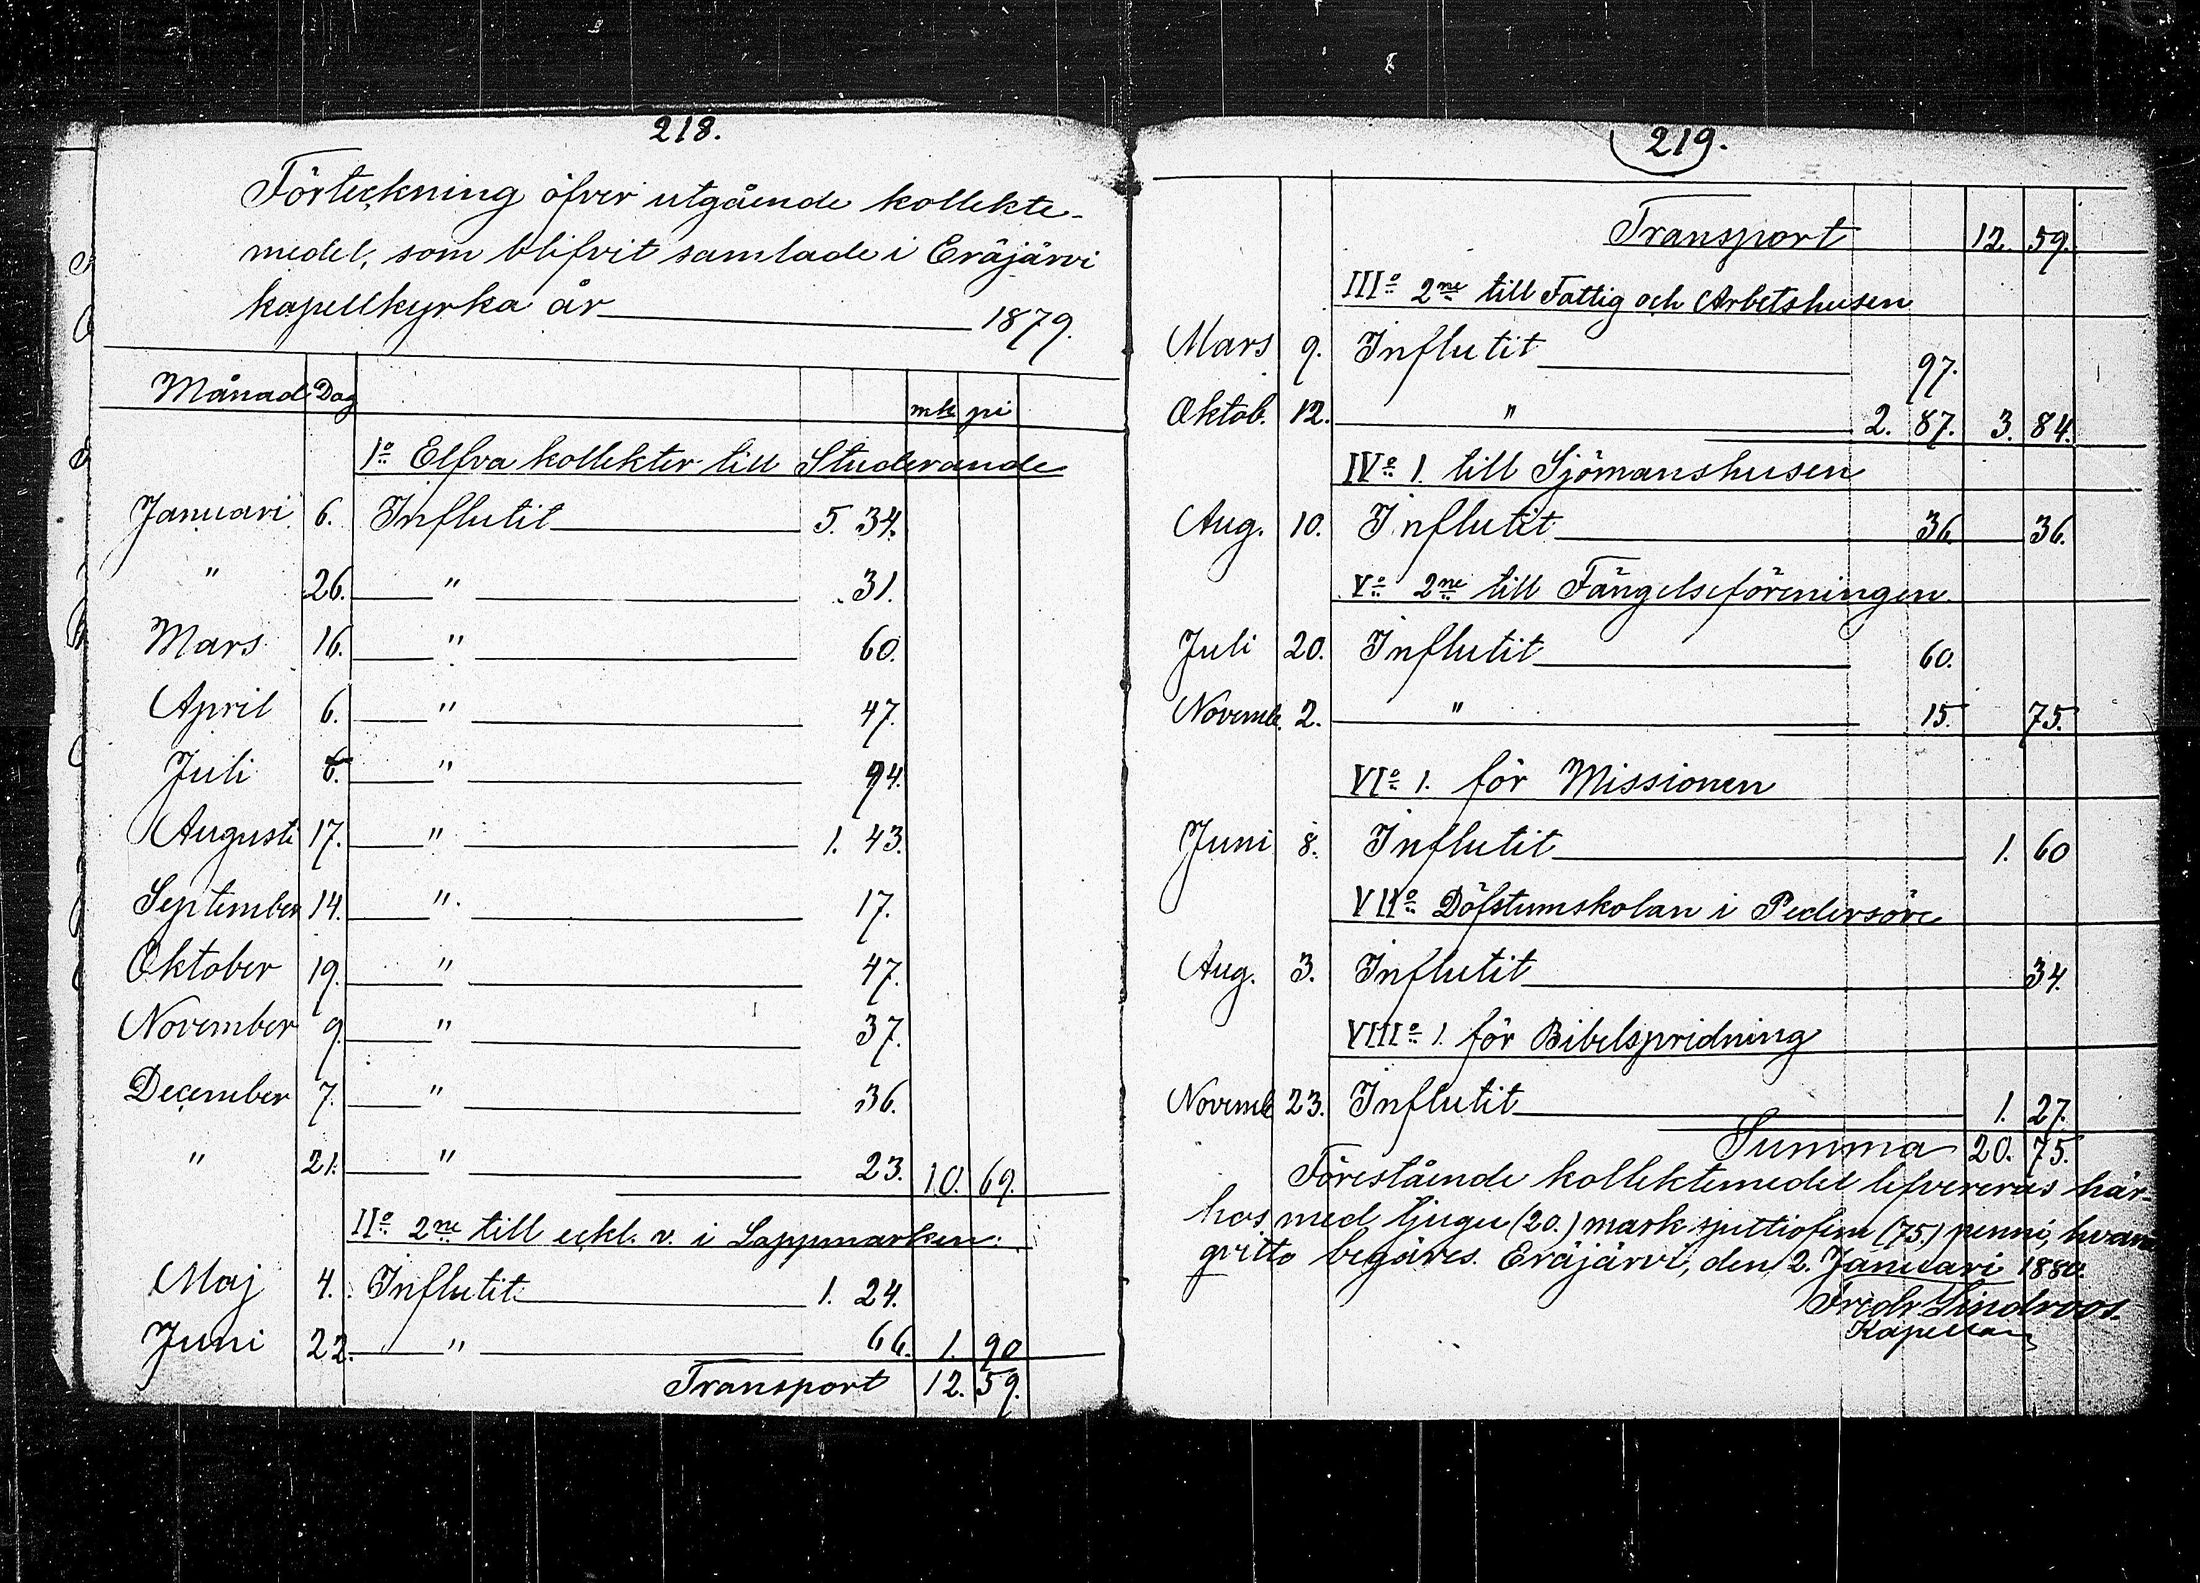 218.
Förteckning öfver utgående kollekte-
medel, som blifvit samlade i Eräjärvi
kapellkyrka år 1879.
Månad Dag mk pi
Io Elfva kollekter till Studerande
Januari 6. Influtit 5. 34.
" 26. " 31.
Mars 16. " 60.
April 6. " 47.
Juli 6. " 94.
Augusti 17. " 1. 43.
September 14. " 17.
Oktober 19. " 47.
November 9. " 37.
December 7. " 36.
" 21. " 23. 10. 69.
IIo 2ne till eckl. v. i Lappmarken.
Maj 4. Influtit 1. 24.
Juni 22. " 66. 1. 90
Transport 12. 59.
219.
Transport 12. 59.
IIIo 2ne till Fattig och Arbetshusen
Mars 9. Influtit 97.
Oktob. 12. " 2. 87. 3. 84.
IVo 1. till Sjömanshusen
Aug. 10. Influtit 36. 36.
Vo 2ne till Fängelseföreningen
Juli 20. Influtit 60.
Novemb. 2. " 15. 75.
VIo 1. för Missionen
Juni 8. Influtit 1. 60
VIIo Döfstumskolan i Pedersöre
Aug. 3. Influtit 34.
VIIIo 1. för Bibelspridning
Novemb 23. Influtit 1. 27.
Summa 20. 75.
Förestående kollektemedel lefvereras här
hos med tjugu (20.) mark sjuttiofem (75.) penni, hvarå
qvitto begäres. Eräjärvi, den 2. Januari 1880.
Fredr. Lindroos.
Kapellan